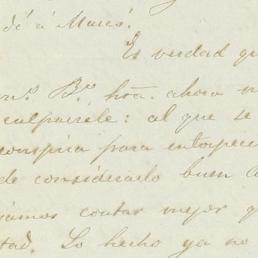 dé á Mureó.
Es verdad qu
Bn. hta. ahora n
culparsele: al que se
conspira para entorpece
de considerarlo buen
iamos contar mejor q
tad. Lo hecho ya no